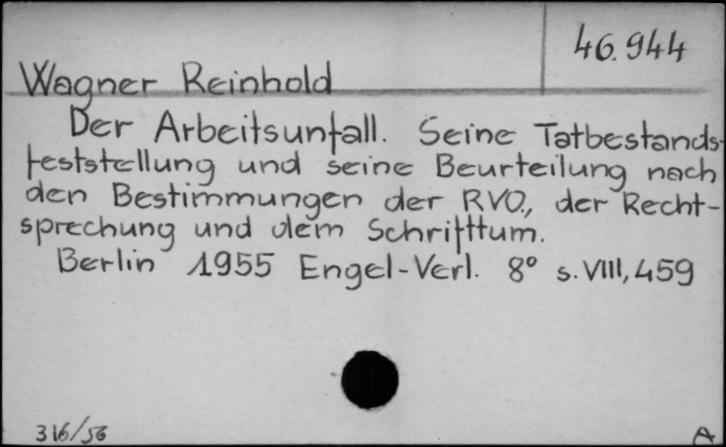 46.944
Wagner Reinhold
Der Arbeitsunfall. Seine Tatbestands-
feststellung und seine Beurteilung nach
den Bestimmungen der RVO., der Recht-
sprechung und dem Schrifttum.
Berlin 1955 Engel-Verl. 8° s. VIII, 459
316/56
A